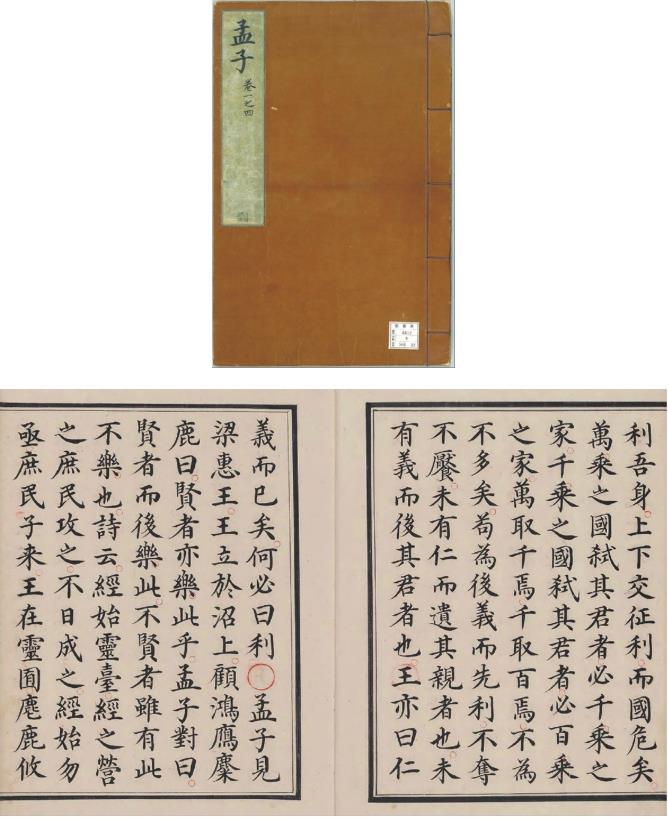 孟子
卷一之四
利吾身上下交征利而國危矣
萬乘之國弒其君者必千乘之
家千乘之國弒其君者必百乘
之家萬取千焉千取百焉不為
不多矣苟為後義而先利不奪
不饜未有仁而遺其親者也未
有義而後其君者也王亦曰仁
義而已矣何必曰利〇孟子見
梁惠王王立於沼上顧鴻鴈麋
鹿曰賢者亦樂此乎孟子對曰
賢者而後樂此不賢者雖有此
不樂也詩云經始靈臺經之營
之庶民攻之不日成之經始勿
亟庶民子來王在靈囿麀鹿攸